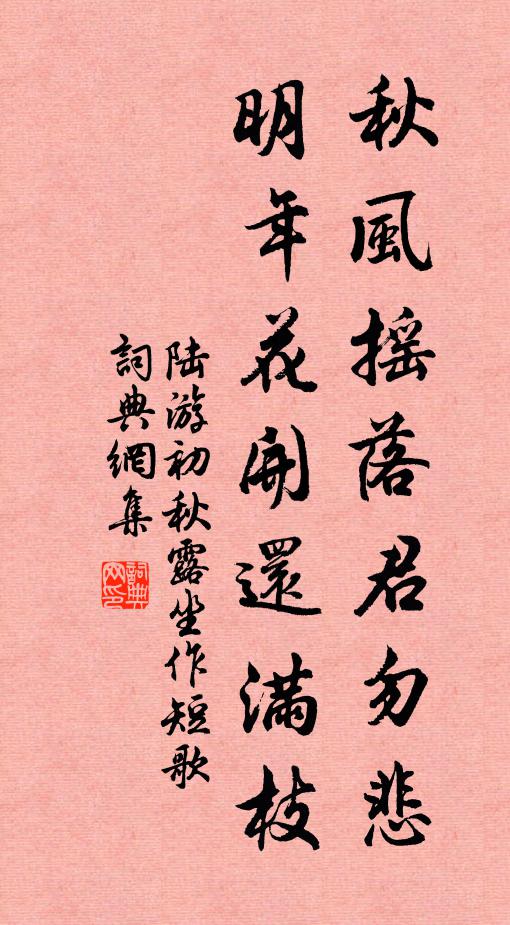 秋風摇落君勿悲
明年花開還滿枝
陆游初秋露坐作短歌
詞典網集
詞典网印